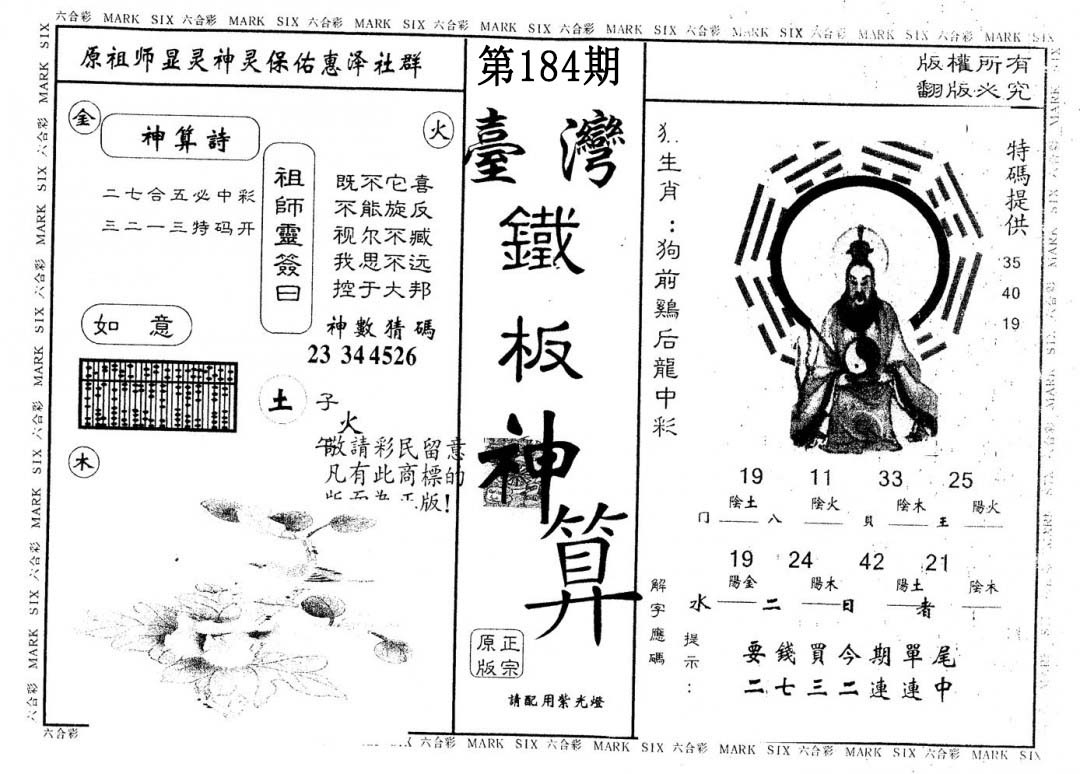 六合彩 MARK SIX 六合彩 MARK SIX 六合彩 MARK SIX 六合彩 MARK SIX 六合彩 MARK SIX 六合彩 MARK SIX 六合彩 MARK SIX 六合彩 MARK SIX
原祖师显灵神灵保佑惠泽社群
金
火
神算詩
二七合五必中彩
三二一三特码开
祖師靈簽曰
既不它喜
不能旋反
视尔不臧
我思不远
控于大邦
如意
神數猜碼
23 344526
土
子
火
午
木
敬請彩民留意
凡有此商標的
版!
第184期
臺灣
鐵
板
神
算
原正
版宗
請配用紫光燈
版權所有
翻版必究
生肖:狗前鷄后龍中彩
特碼提供
35
40
19
19 11 33 25
陰土 陰火 陰木 陽火
门 八 貝 王
19 24 42 21
陽金 陽木 陽土 陰木
水 二 日 者
解字應碼
提示:
要錢買今期單尾
二七三二連連中
六合彩
六合彩 MARK SIX 六合彩 MARK SIX 六合彩 MARK SIX 六合彩 MARK SIX 六合彩 MARK SIX